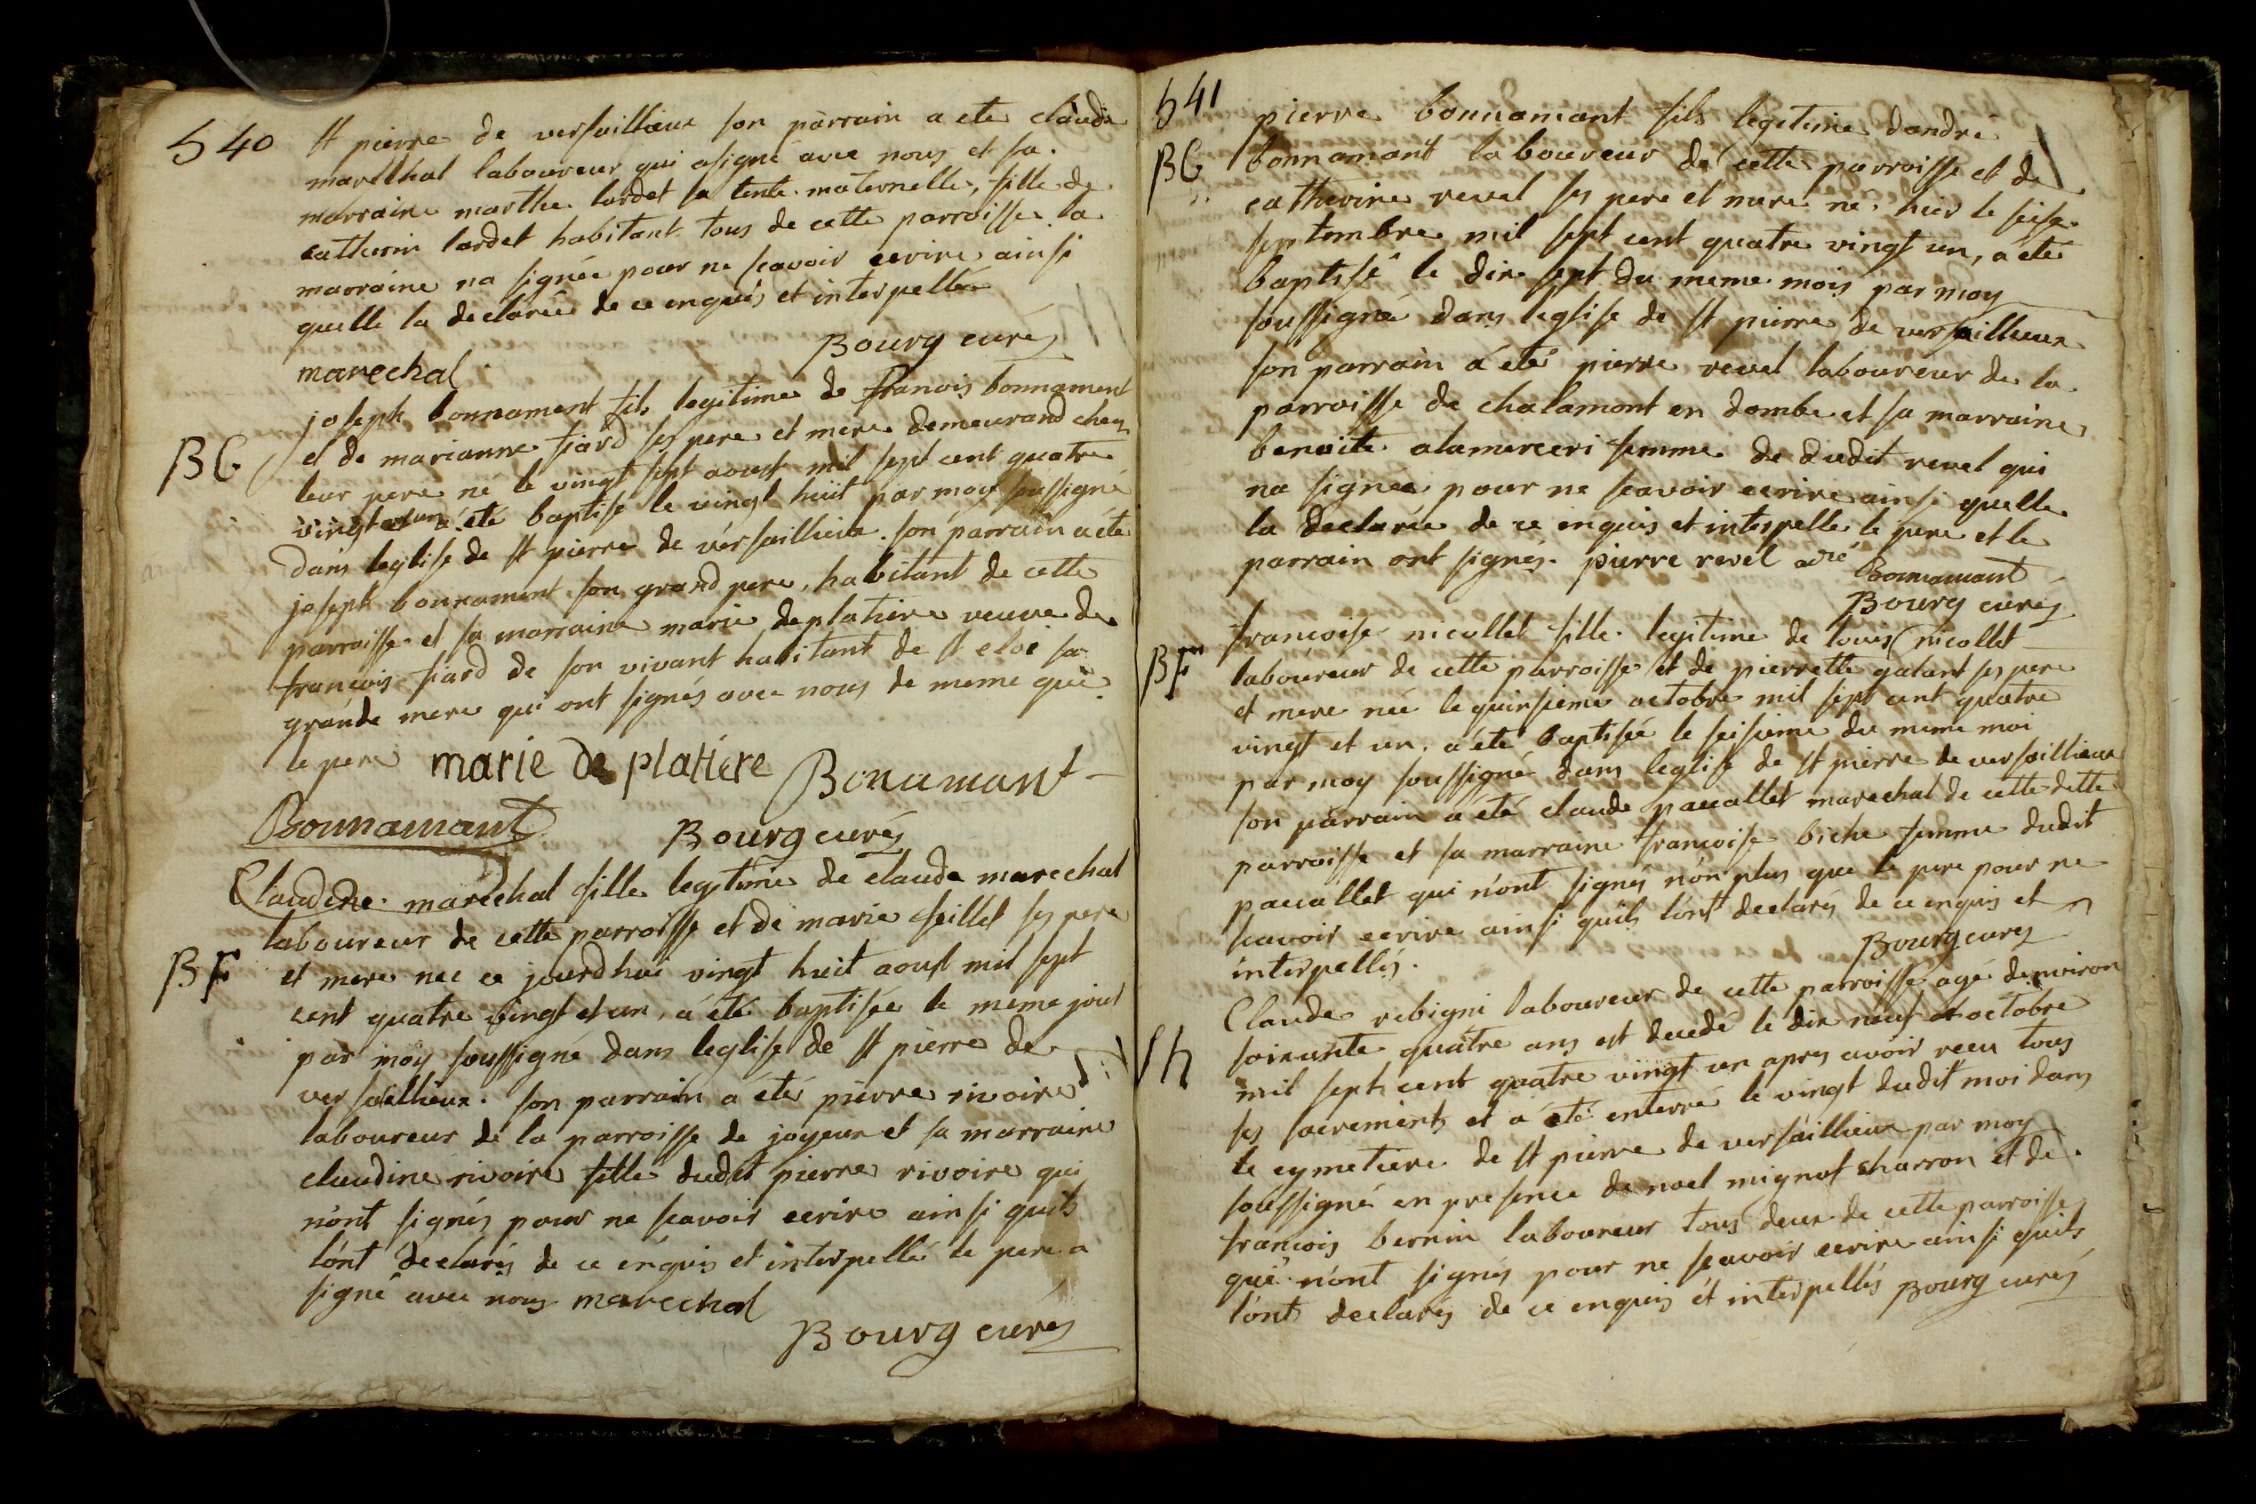 540
st pierre de versaillieux son parrain a ete claude
marêchal laboureur qui asigné avec nous et sa
marraine marthe lardet sa tente maternelle, fille de
catherin lardet habitant tous de cette parroisse la
marraine na signée pour ne scavoir ecrire ainsi
quelle la declarée de ce enquis et interpellée
Bourg curé
marechal
BG
joseph bonnament fils legitime de francois bonnament
et de marianne fiard ses pere et mere demeurand chez
leur pere né le vingt sept aoust mil sept cent quatre
vingt et un a été baptise le vingt huit par moy soussigné
dans leglise de st pierre de versaillieux. son parrain a été
joseph bonnament son grand pere, habitant de cette
parroisse et sa marraine marie deplatiere veuve de
francois fiard de son vivant habitant de st eloi sa
grande mere qui ont signés avec nous de meme que
le pere marie de platiere Bonamant
Bonnamant Bourg curé
Claudine marechal fille legitime de claude marechal
BF
laboureur de cette parroisse et de marie seillet ses pere
et mere nee ce jourdhui vingt huit aoust mil sept
cent quatre vingt et un, a été baptisée le même jour
par moy soussigné dans leglise de st pierre de
versaillieux. son parrain a été pierre rivoire
laboureur de la parroisse de joyeux et sa marraine
claudine rivoire fille dudit pierre rivoire qui
n'ont signés pour ne scavoir ecrire ainsi quils
l'ont declarés de ce enquis et interpellé le pere a
signé avec nous marechal
Bourg curé
541
BG
pierre bonnamant fils legitime dandré
bonnamant laboureur de cette parroisse et de
catherine revel ses pere et mere né hier le seise
septembre mil sept cent quatre vingt un, a été
baptisé le dix sept du meme mois par moy
soussigné dans leglise de st pierre de versaillieux
son parrain a été pierre revel laboureur de la
parroisse de chalamont en dombe et sa marraine
benoite alamerceri femme de dudit revel qui
na signée pour ne scavoir ecrire ainsi quelle
la declarée de ce enquis et interpelle le pere et le
parrain ont signés. pierre revel Bonnamant
Bourg curé
BF
francoise nicollet fille legitime de louis nicollet
laboureur de cette parroisse et de pierrette galant ses pere
et mere née le quinsieme octobre mil sept cent quatre
vingt et un. a été baptisée le seisieme du meme moi
par moy soussigné dans leglise de st pierre de versaillieux
son parrain a été claude pacallet marechal de cette dette
parroisse et sa marraine francoise biche femme dudit
pacallet qui n'ont signés non plus que le pere pour ne
scavoir ecrire ainsi quils l'ont declarés de ce enquis et
interpellés.
Bourg curé
Claude rebigni laboureur de cette parroisse agé denviron
soixante quatre ans est decedé le dix neuf octobre
mil sept cent quatre vingt un apres avoir recu tous
ses sacrements et a été enterré le vingt dudit moi dans
le cymetiere de st pierre de versaillieux par moy
soussigné en presence de noel mignot charron et de
francois bernin laboureur tous deux de cette parroisse
qui n'ont signés pour ne scavoir ecrire ainsi quils
l'ont declarés de ce enquis et interpellés Bourg curé